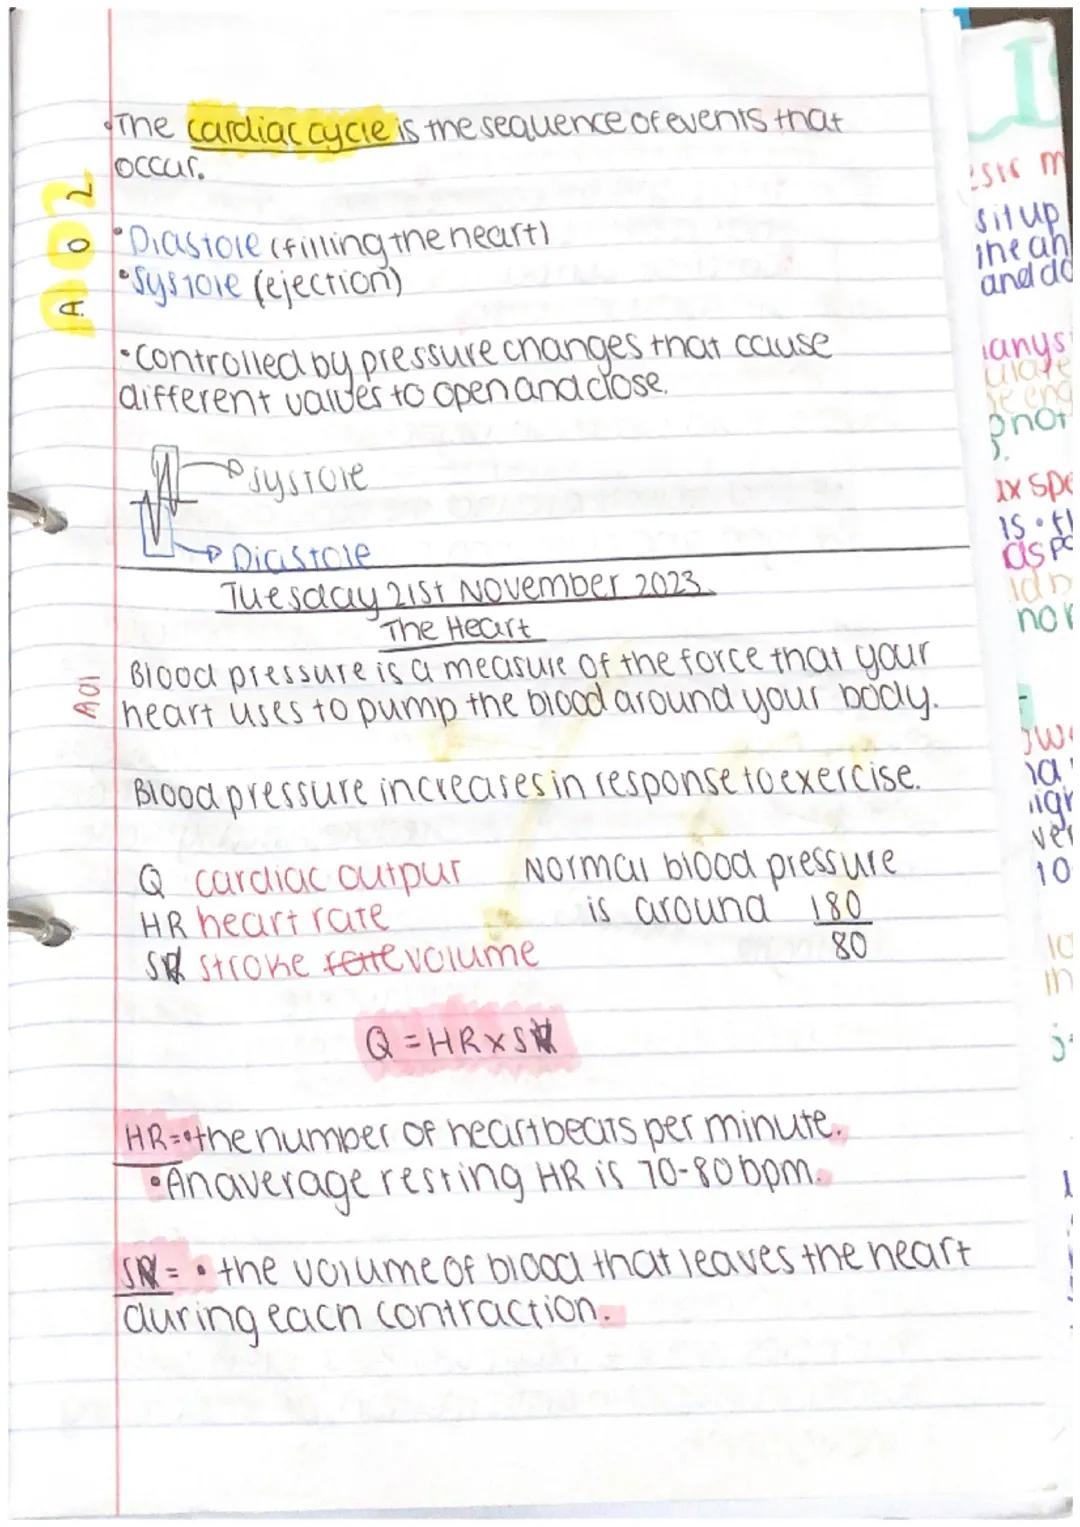 •The cardiac cycle is the sequence of events that
occur.
A02
•Diastole (filling the heart)
•Systole (ejection)
•Controlled by pressure changes that cause
different valves to open and close.
Systole
Diastole
Tuesday 21st November 2023
The Heart
A01
Blood pressure is a measure of the force that your
heart uses to pump the blood around your body.
Blood pressure increases in response to exercise.
Q cardiac output
HR heart rate
SV stroke rate volume
Normal blood pressure
is around 180
80
Q = HR x SV
HR= •the number of heartbeats per minute.
•An average resting HR is 70-80bpm.
SV= • the volume of blood that leaves the heart
during each contraction.
sit up
and do
not
is
10